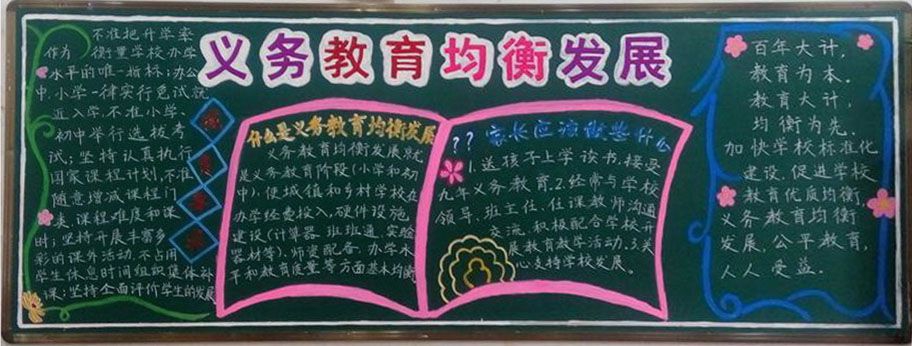 义务教育均衡发展
不准把升学率
作为衡量学校办学
水平的唯一指标；办公
中小学一律实行免试就
近入学，不准小学、
初中举行选拔考
试；坚持认真执行
国家课程计划，不准
随意增减课程门
类、课程难度和课
时；坚持开展丰富多
彩的课外活动，不占用
学生休息时间组织集体补
课；坚持全面评价学生的发展
什么是义务教育均衡发展
义务教育均衡发展就
是义务教育阶段（小学和初
中），使城镇和乡村学校在
办学经费投入，硬件设施，
建设（计算器、班班通、实验
器材等），师资配备、办学水
平和教育质量等方面基本均衡
??家长应该做些什么
1.送孩子上学读书，接受
九年义务教育.2.经常与学校
领导、班主任、任课教师沟通
交流，积极配合学校开
展教育教学活动.3.关
心支持学校发展。
百年大计，
教育为本.
教育大计，
均衡为先.
加快学校标准化
建设，促进学校
教育优质均衡
义务教育均衡
发展，公平教育，
人人受益.